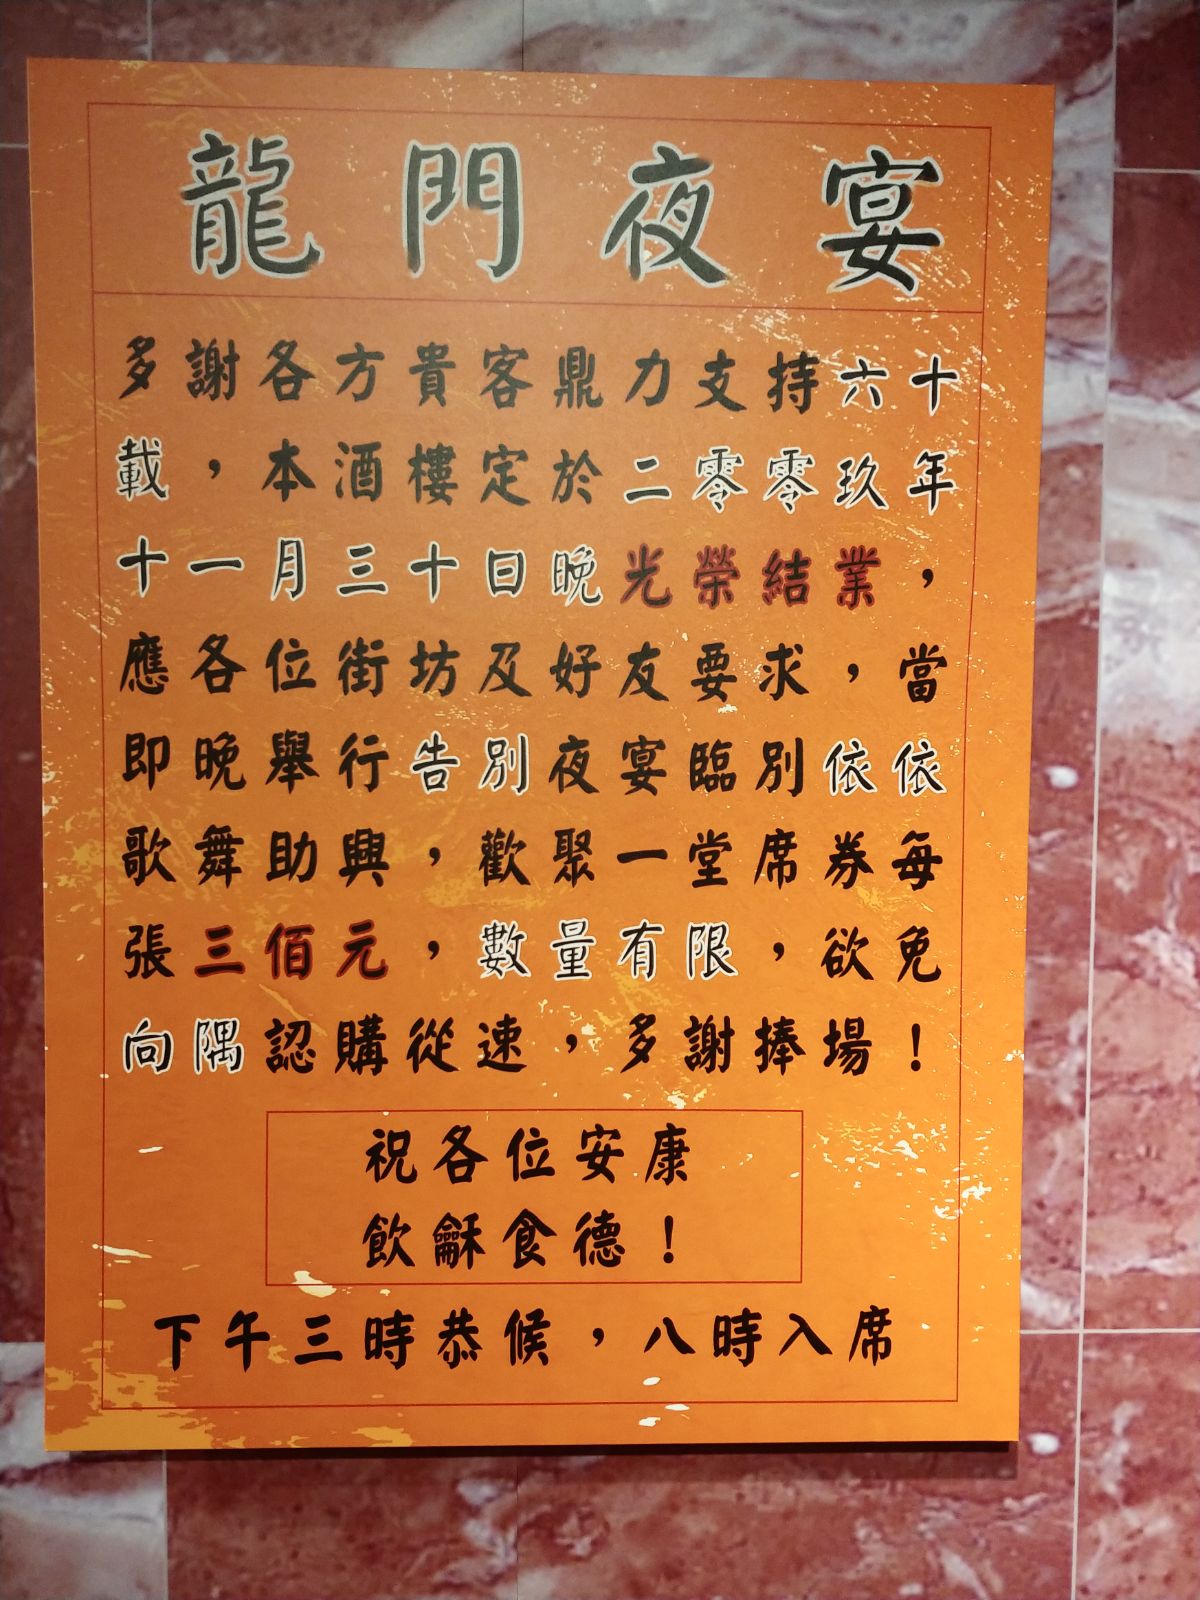 龍門夜宴
多謝各方貴客鼎力支持六十
載，本酒樓定於二零零玖年
十一月三十日晚光榮結業，
應各位街坊及好友要求，當
即晚舉行告別夜宴臨別依依
歌舞助興，歡聚一堂席券每
張三佰元，數量有限，欲免
向隅認購從速，多謝捧場！
祝各位安康
飲龢食德！
下午三時恭候，八時入席